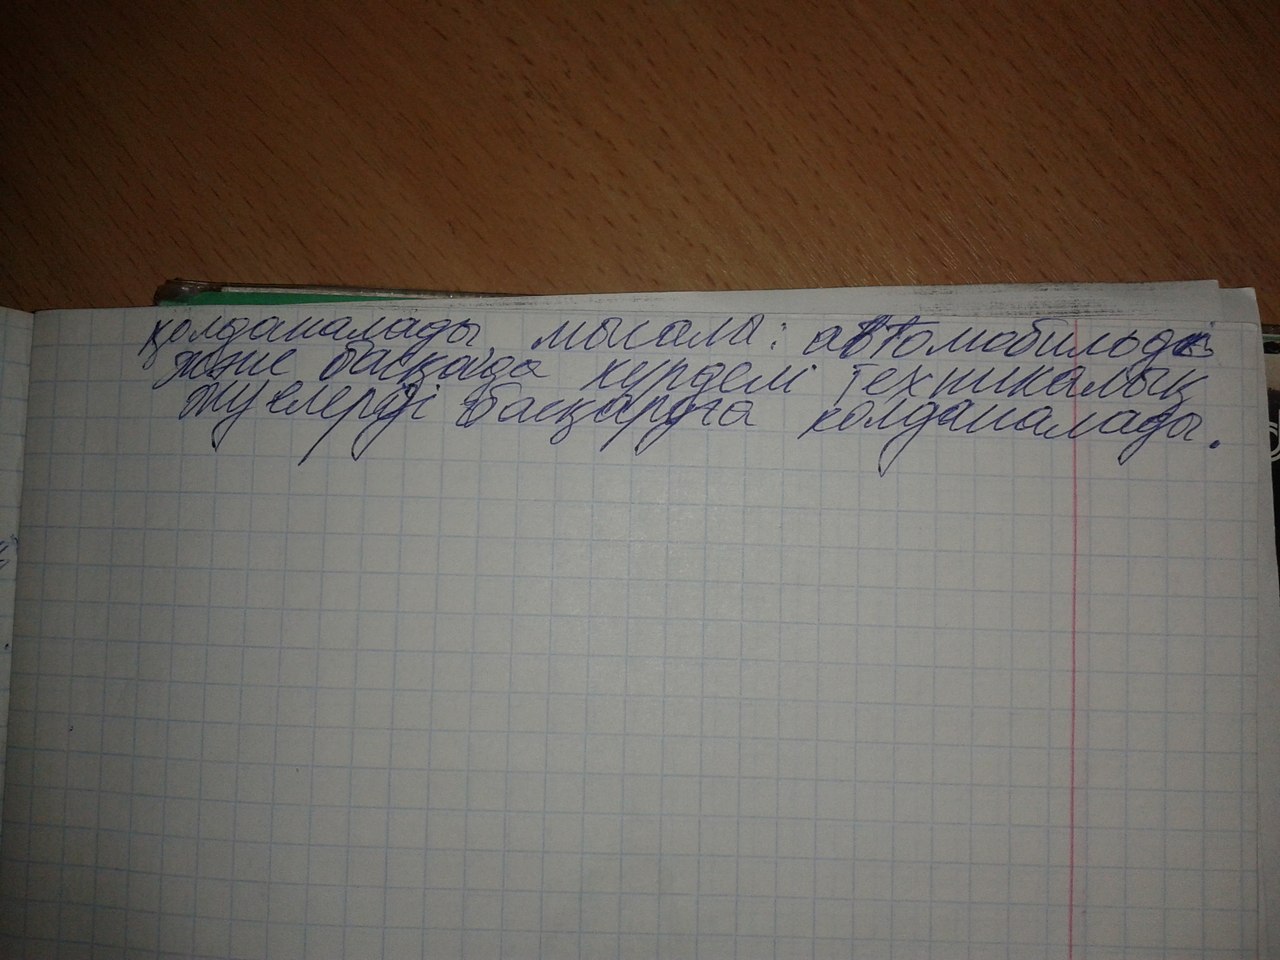 қолданалады, мысалы: автомобильде
және басқада күрделі техникалық
жүелерді басқаруға қолданалады.